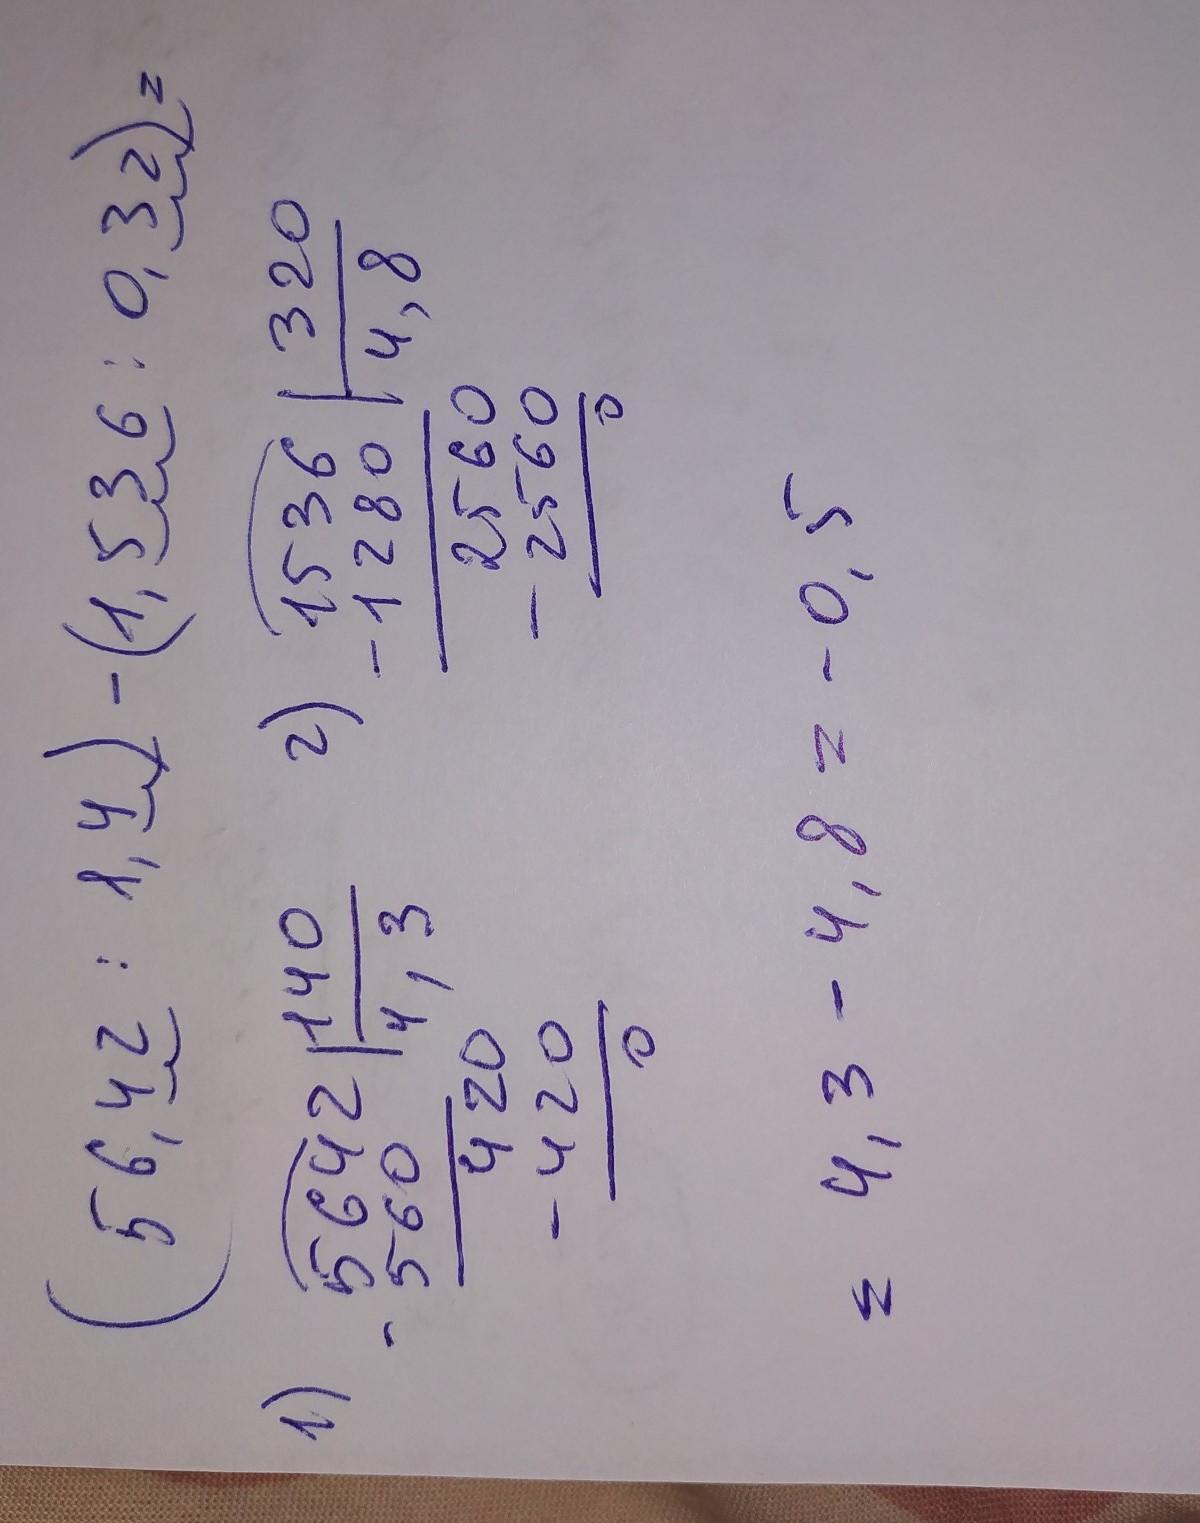 (56,42 : 1,4) - (1,536 : 0,32) =
1) 5642 | 140
- 560 | 4,3
420
- 420
0
2) 1536 | 320
- 1280 | 4,8
2560
- 2560
0
= 4,3 - 4,8 = - 0,5